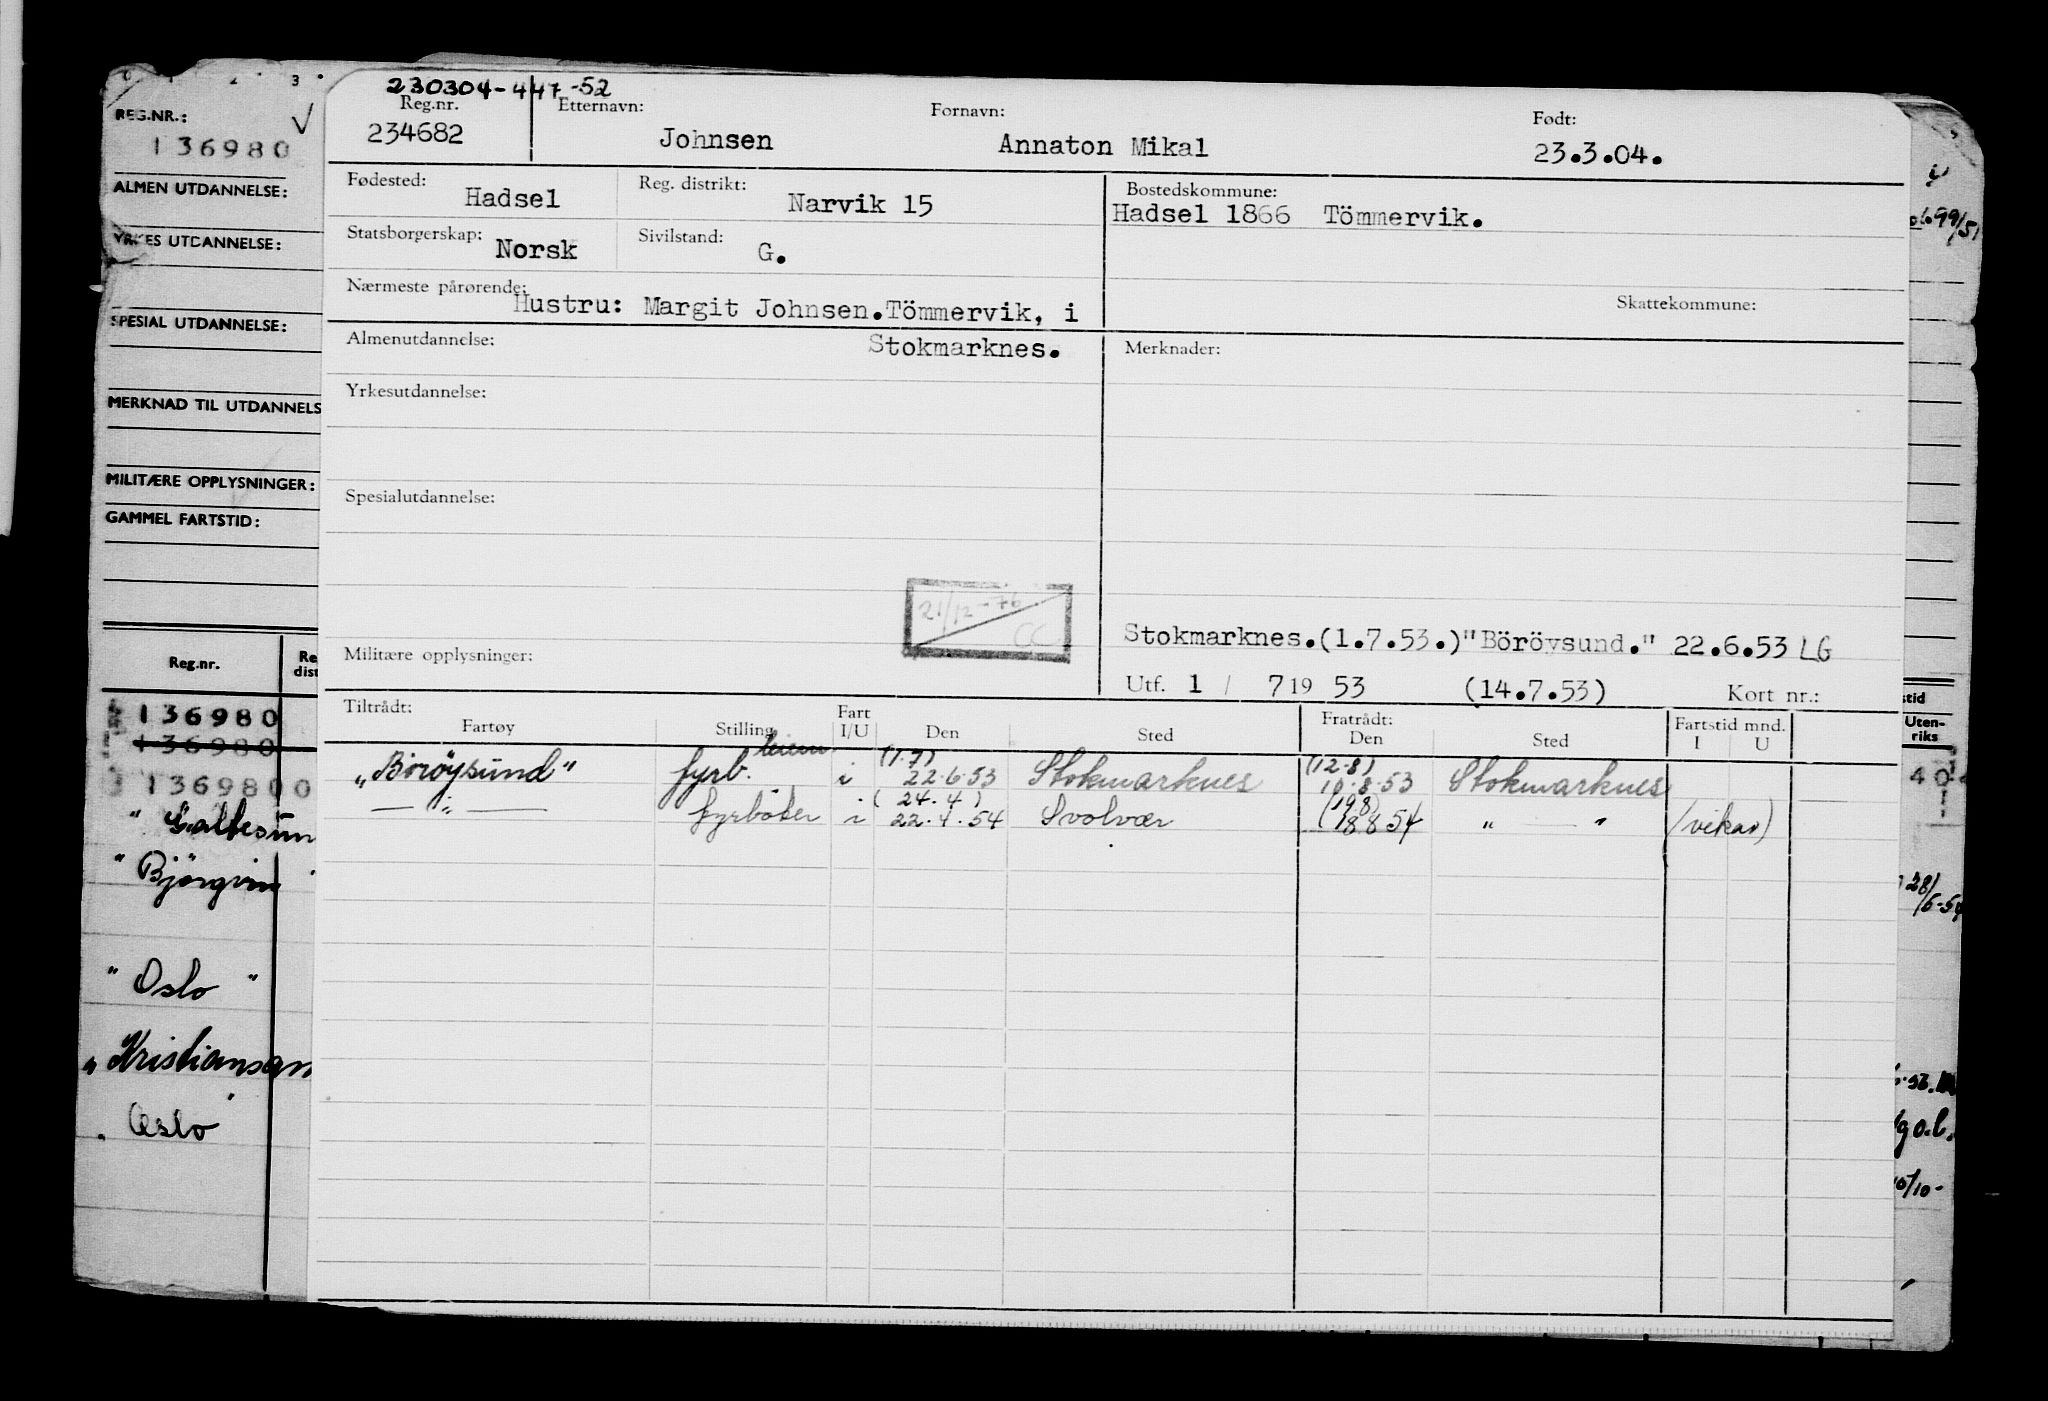 230304-447-52
Reg.nr. Etternavn: Fornavn: Født:
234682 Johnsen Annaton Mikal 23.3.04.
Fødested: Hadsel Reg. distrikt: Narvik 15 Bostedskommune:
Hadsel 1866 Tömmervik.
Statsborgerskap: Norsk Sivilstand: G.
Nærmeste pårørende: Hustru: Margit Johnsen.Tömmervik, i Skattekommune:
Almenutdannelse: Stokmarknes. Merknader:
Yrkesutdannelse:
Spesialutdannelse:
21/12-76
CC
Stokmarknes.(1.7.53.)"Böröysund." 22.6.53 LG
Militære opplysninger:
Utf. 1 / 7 19 53 (14.7.53) Kort nr.:
Tiltrådt: Fart Fratrådt: Fartstid mnd.
Fartøy Stilling I/U Den Sted Den Sted I U
(1.7) (12.8)
"Börøysund" fyrb. i 22.6.53 Stokmarknes 10.8.53 Stokmarknes
(24.4) (19.8)
— " — fyrbøter i 22.4.54 Svolvær 18854 " — " (vikar)
0 1 2 3
REG.NR.:
136980
ALMEN UTDANNELSE:
YRKES UTDANNELSE:
SPESIAL UTDANNELSE:
MERKNAD TIL UTDANNELS
MILITÆRE OPPLYSNINGER:
GAMMEL FARTSTID:
Reg.nr. Re
dist
136980
136980
1369800
" Galtesun
" Bjørgvin
" Oslo "
" Kristiansan
" Oslo
99/51
stid
Uten-
riks
40
28/
6-54
go.l.
10/10-